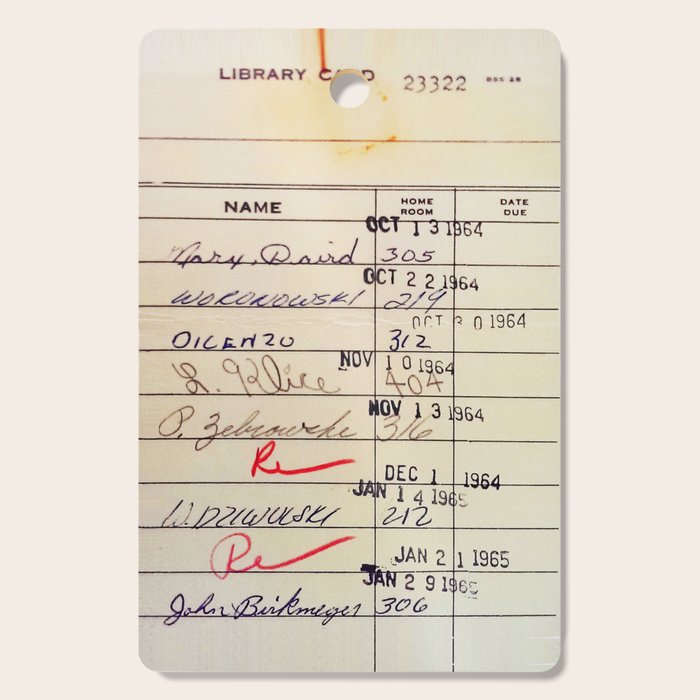 LIBRARY C RD 23322 BSS 28
NAME HOME ROOM DATE DUE
OCT 13 1964
Mary, Daird 305
OCT 22 1964
WORONOWSKI 219
OCT 30 1964
DICENZO 312
NOV 10 1964
L. Klice 404
NOV 13 1964
P. Zebrowske 316
Re
DEC 1 1964
JAN 14 1965
W. DZIWULSKI 212
Re
JAN 21 1965
JAN 29 1965
John Birkmeyer 306